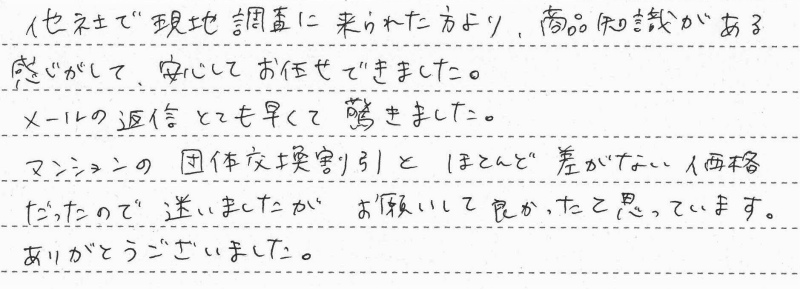 他社で現地調査に来られた方より、商品知識がある
感じがして、安心してお任せできました。
メールの返信とても早くて驚きました。
マンションの団体交換割り引とほとんど差がない価格
だったので迷いましたがお願いして良かったと思っています。
ありがとうございました。